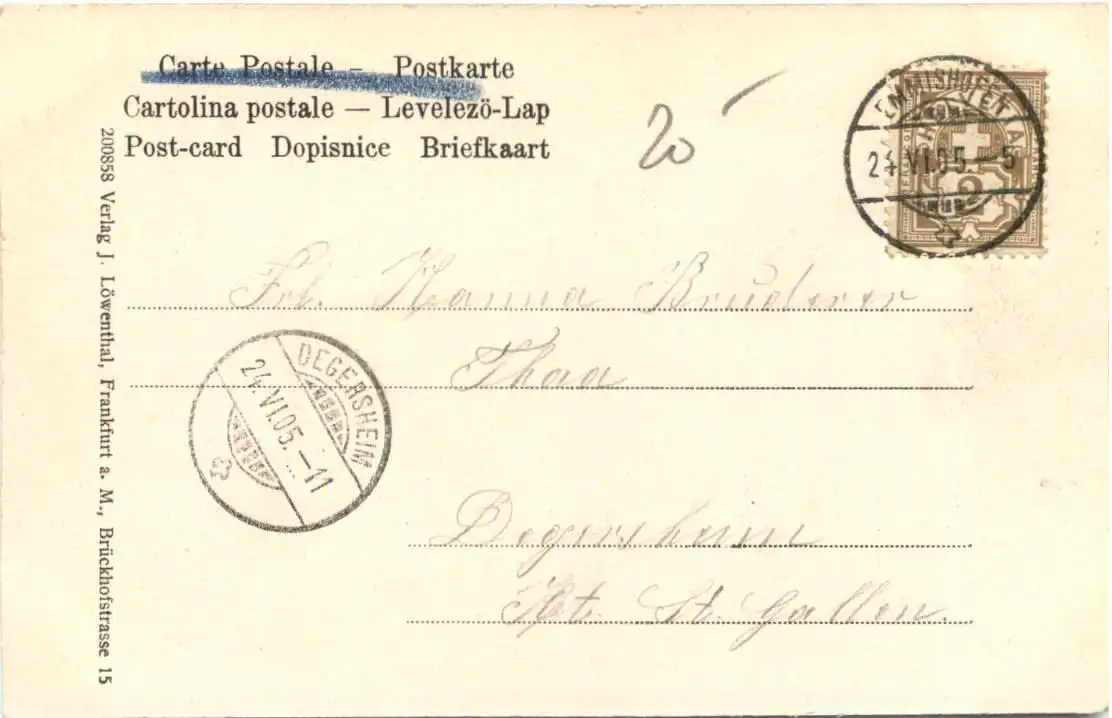 Carte Postale — Postkarte
Cartolina postale — Levelezö-Lap
Post-card Dopisnice Briefkaart
20
EMMISHOFEN
24.VI.05. — 5
2
Frl. Hanna Bruderer
Thaa
DEGERSHEIM
24.VI.05. — 11
Degersheim
Kt. St. Gallen.
200858 Verlag J. Löwenthal, Frankfurt a. M., Brückhofstrasse 15